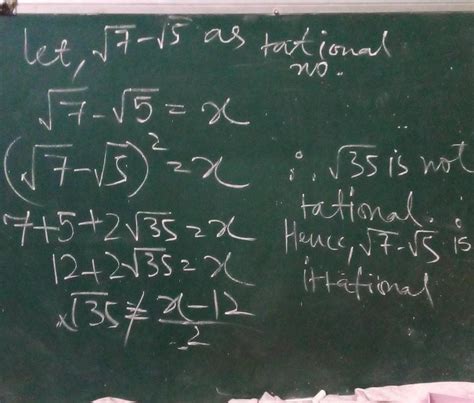 let, √7-√5 as rational
no.
√7-√5 = x
(√7-√5)² = x
7+5+2√35 = x
12+2√35 = x
√35 ≠ x-12/2
∴ √35 is not
rational.
Hence, √7-√5 is
irrational